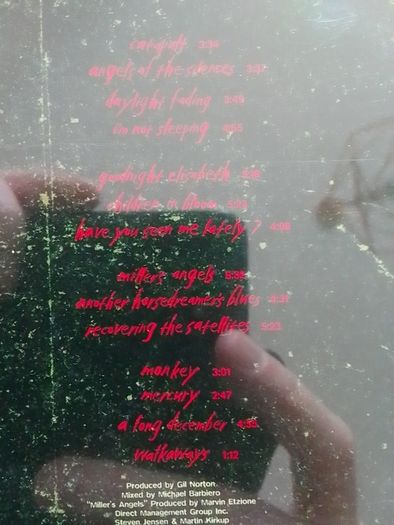 catapult 3:34
angels of the silences 3:37
daylight fading 3:49
i'm not sleeping 4:55
goodnight elisabeth
children in bloom 5:23
have you seen me lately? 4:09
miller's angels 6:33
another horsedreamer's blues 4:31
recovering the satellites 5:23
monkey 3:01
mercury 2:47
a long december 4:55
walkaways 1:12
Produced by Gil Norton
Mixed by Michael Barbiero
"Miller's Angels" Produced by Marvin Etzione
Direct Management Group Inc.
Steven Jensen & Martin Kirkup